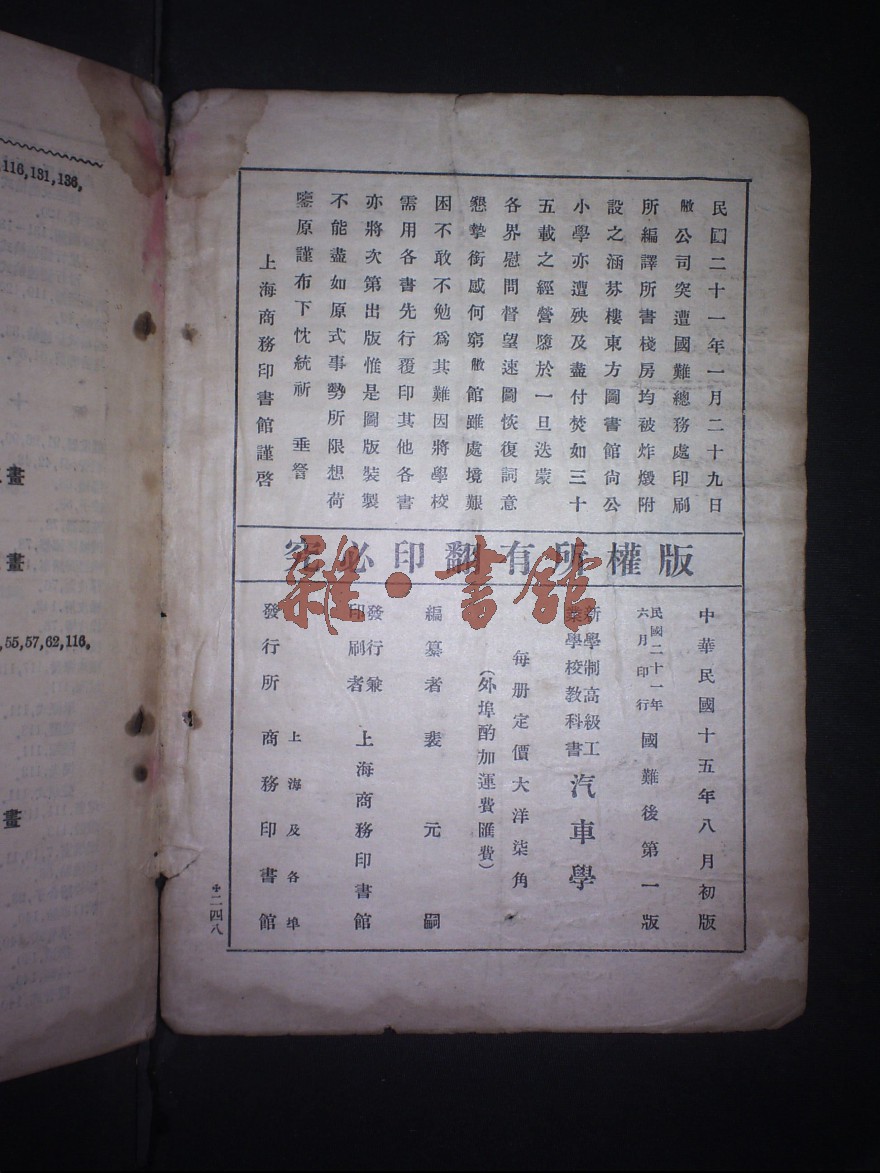 民國二十一年一月二十九日
敝公司突遭國難總務處印刷
所編譯所書棧房均被炸燬附
設之涵芬樓東方圖書館尙公
小學亦遭殃及盡付焚如三十
五載之經營隳於一旦迭蒙
各界慰問督望速圖恢復詞意
懇摯銜感何窮敝館雖處境艱
困不敢不勉爲其難因將學校
需用各書先行覆印其他各書
亦將次第出版惟是圖版裝製
不能盡如原式事勢所限想荷
鑒原謹布下忱統祈 垂詧
上海商務印書館謹啓
版權所有翻印必究
中華民國十五年八月初版
民國二十一年六月印行 國難後第一版
新學制高級工業學校教科書 汽車學
每册定價大洋柒角
(外埠酌加運費匯費)
編纂者 裴元嗣
發行兼印刷者 上海商務印書館
發行所 上海及各埠 商務印書館
二四八
雜·書館
116,131,136,
畫
畫
,55,57,62,116,
畫